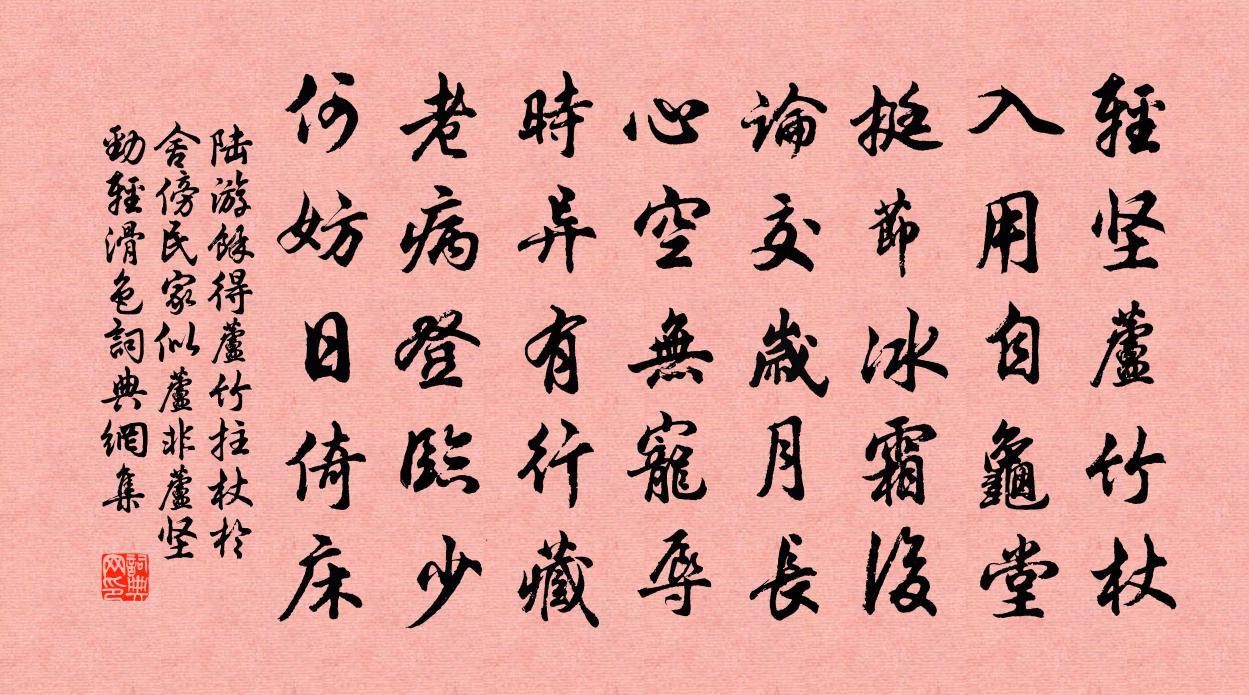 輕坚蘆竹杖
入用自龜堂
挺節冰霜後
論交歲月長
心空無寵辱
時异有行藏
老病登臨少
何妨日倚床
陆游 餘得蘆竹拄杖於
舍傍民家似蘆非蘆坚
勁輕滑色詞典網集
詞典网印